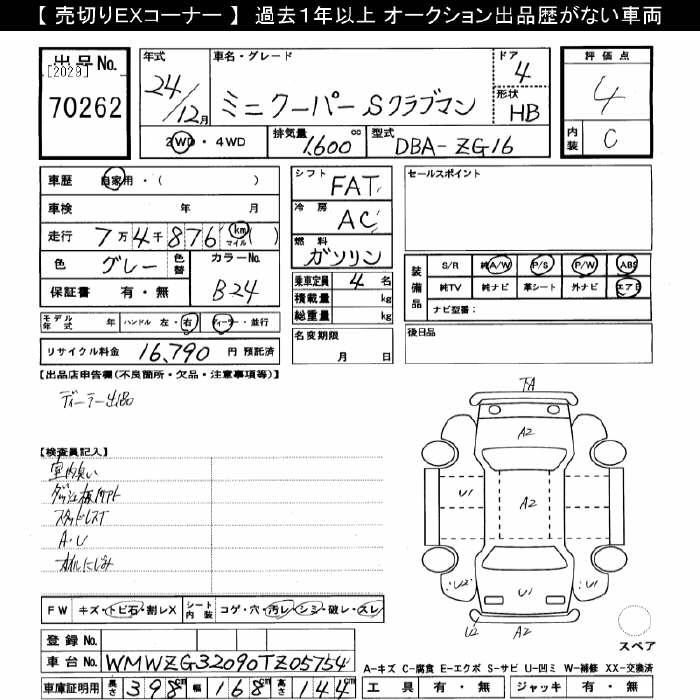 【 売切りEXコーナー 】 過去1年以上 オークション出品歴がない車両
出品No.
[2029]
70262
年式
24/12月
車名・グレード
ミニクーパーSクラブマン
ドア 4
形状 HB
2WD・4WD
排気量 1,600 cc
型式 DBA-ZG16
評価点
4
内装 C
車歴 自家用・( )
車検 年 月
走行 7万4千876 (km マイル)( )
色 グレー 色替
カラーNo. B24
保証書 有・無
シフト FAT
冷房 AC
燃料 ガソリン
乗車定員 4 名
積載量 kg
総重量 kg
名変期限
月 日
セールスポイント
装備品
S/R 純A/W P/S P/W ABS
純TV 純ナビ 革シート 外ナビ エアB
ナビ型番:
後日品
モデル年式 年 ハンドル 左・右 ディーラー・並行
リサイクル料金 16,790 円 預託済
【出品店申告欄(不良箇所・欠品・注意事項等)】
ディーラー出品
【検査員記入】
室内臭い
ダッシュ板
スタッドレスT
A・U
オイルにじみ
FA
A2
U1
A2
U2
U1
U1
U2
A2
FW キズ・トビ石・割レX
シート内装 コゲ・穴・汚レ・シミ・破レ・スレ
登録No.
車台No. WMWZG32090TZ05754
車庫証明用 長さ 398cm 幅 168cm 高さ 144cm
スペア
A-キズ C-腐食 E-エクボ S-サビ U-凹ミ W-補修 XX-交換済
工具 有・無 ジャッキ 有・無